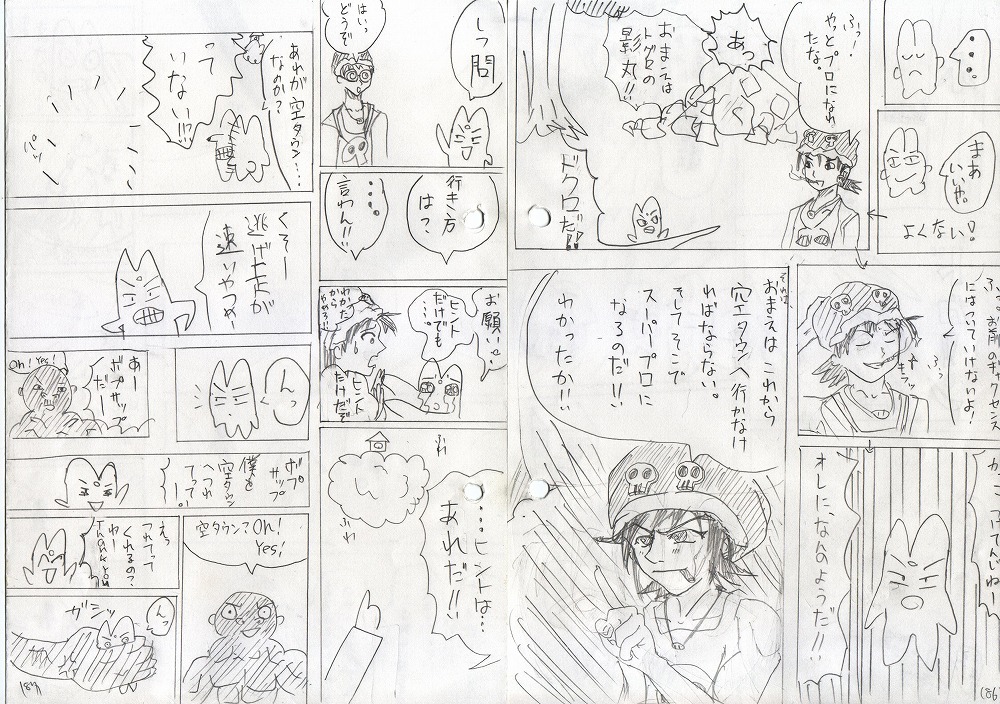 ・・・・
まあ
いいや。
よくない!
ふっ!
やっとプロになれ
たな。
あっ
おまえは
トグロの
影丸!!
ドクロだ!!
ふっ。お前のギャグセンス
にはついていけないよ!
ふっ
キラッ
かっこつけてんじねー
オレに、なんのようだ!!
それは、
おまえはこれから
空タウンへ行かなけ
ればならない。
そしてそこで
スーパープロに
なるのだ!!
わかったか!!
186
しつ問
はいっ
どうぞ
行き方
は?
・・・・
言わん!!
お願い
ヒント
だけでも
・・・。
わかった
から
やめろ!!
ヒント
だけだぞ
ふわ
ふわ
・・・・ヒントは・・・
あれだ!!
あれが空タウン・・・
なのか?
って
いない!!?
パッ
くそー
逃げ足が
速いやつめー
んっ
あー
ボブサップ
だー
Oh! Yes!
ボブ
サップ
僕を
空タウン
へつれ
てってー!
空タウン?Oh!
Yes!
えっ
つれてって
くれるの?
わーい
Thank you
んっ
ガシッ
187